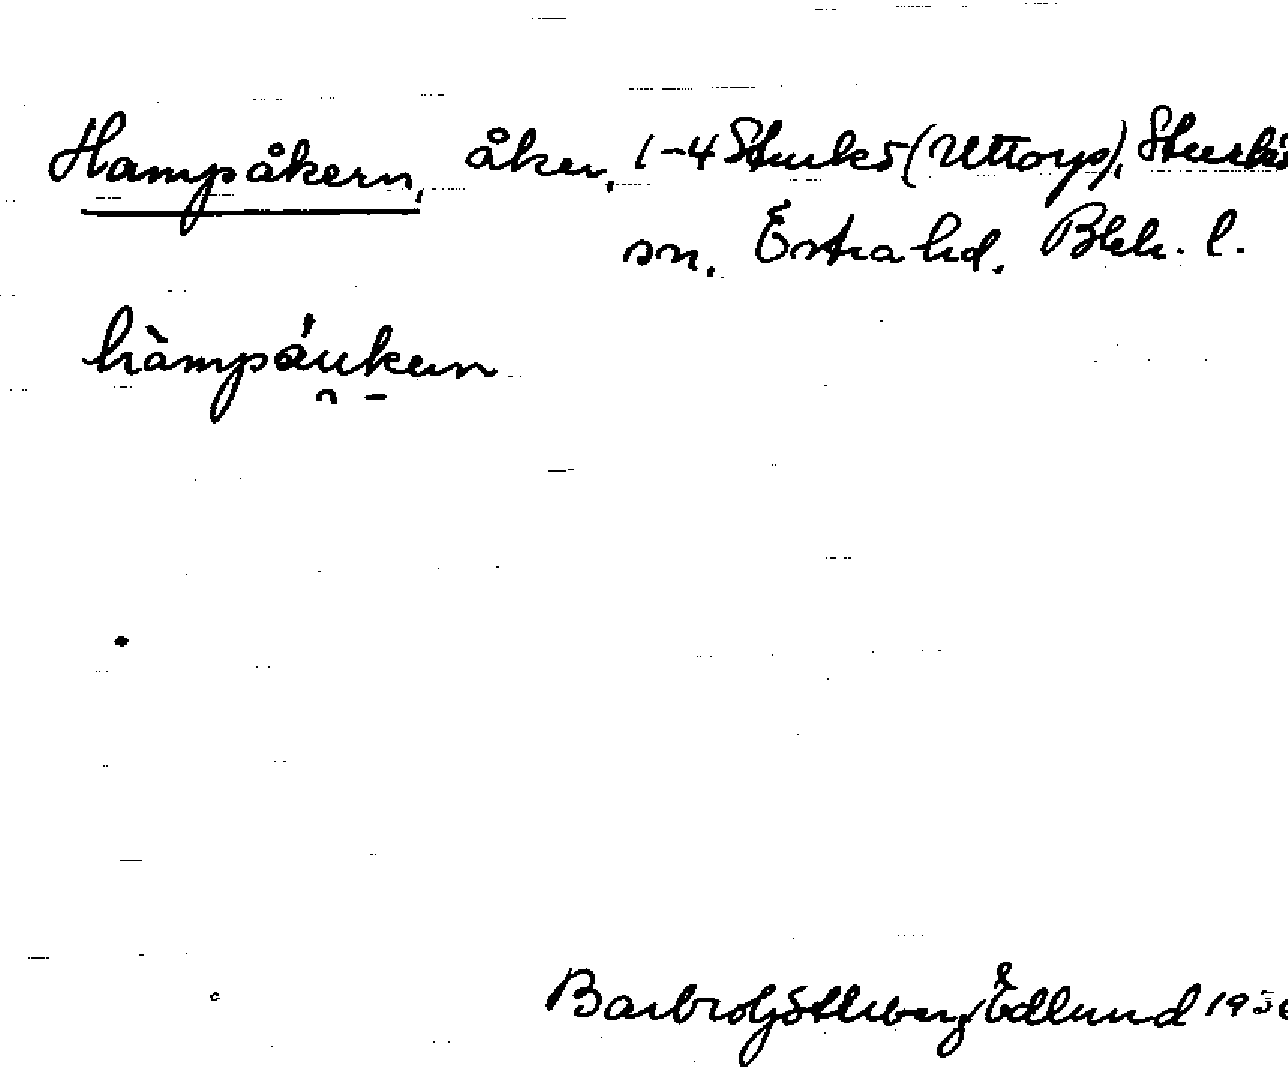 Hampåkern, åker, 1-4 Sturkö (Uttorp), Sturkö
sn, Östra hd. Blek. l.
hàmpáukern
Barbro Götherberg Edlund 195